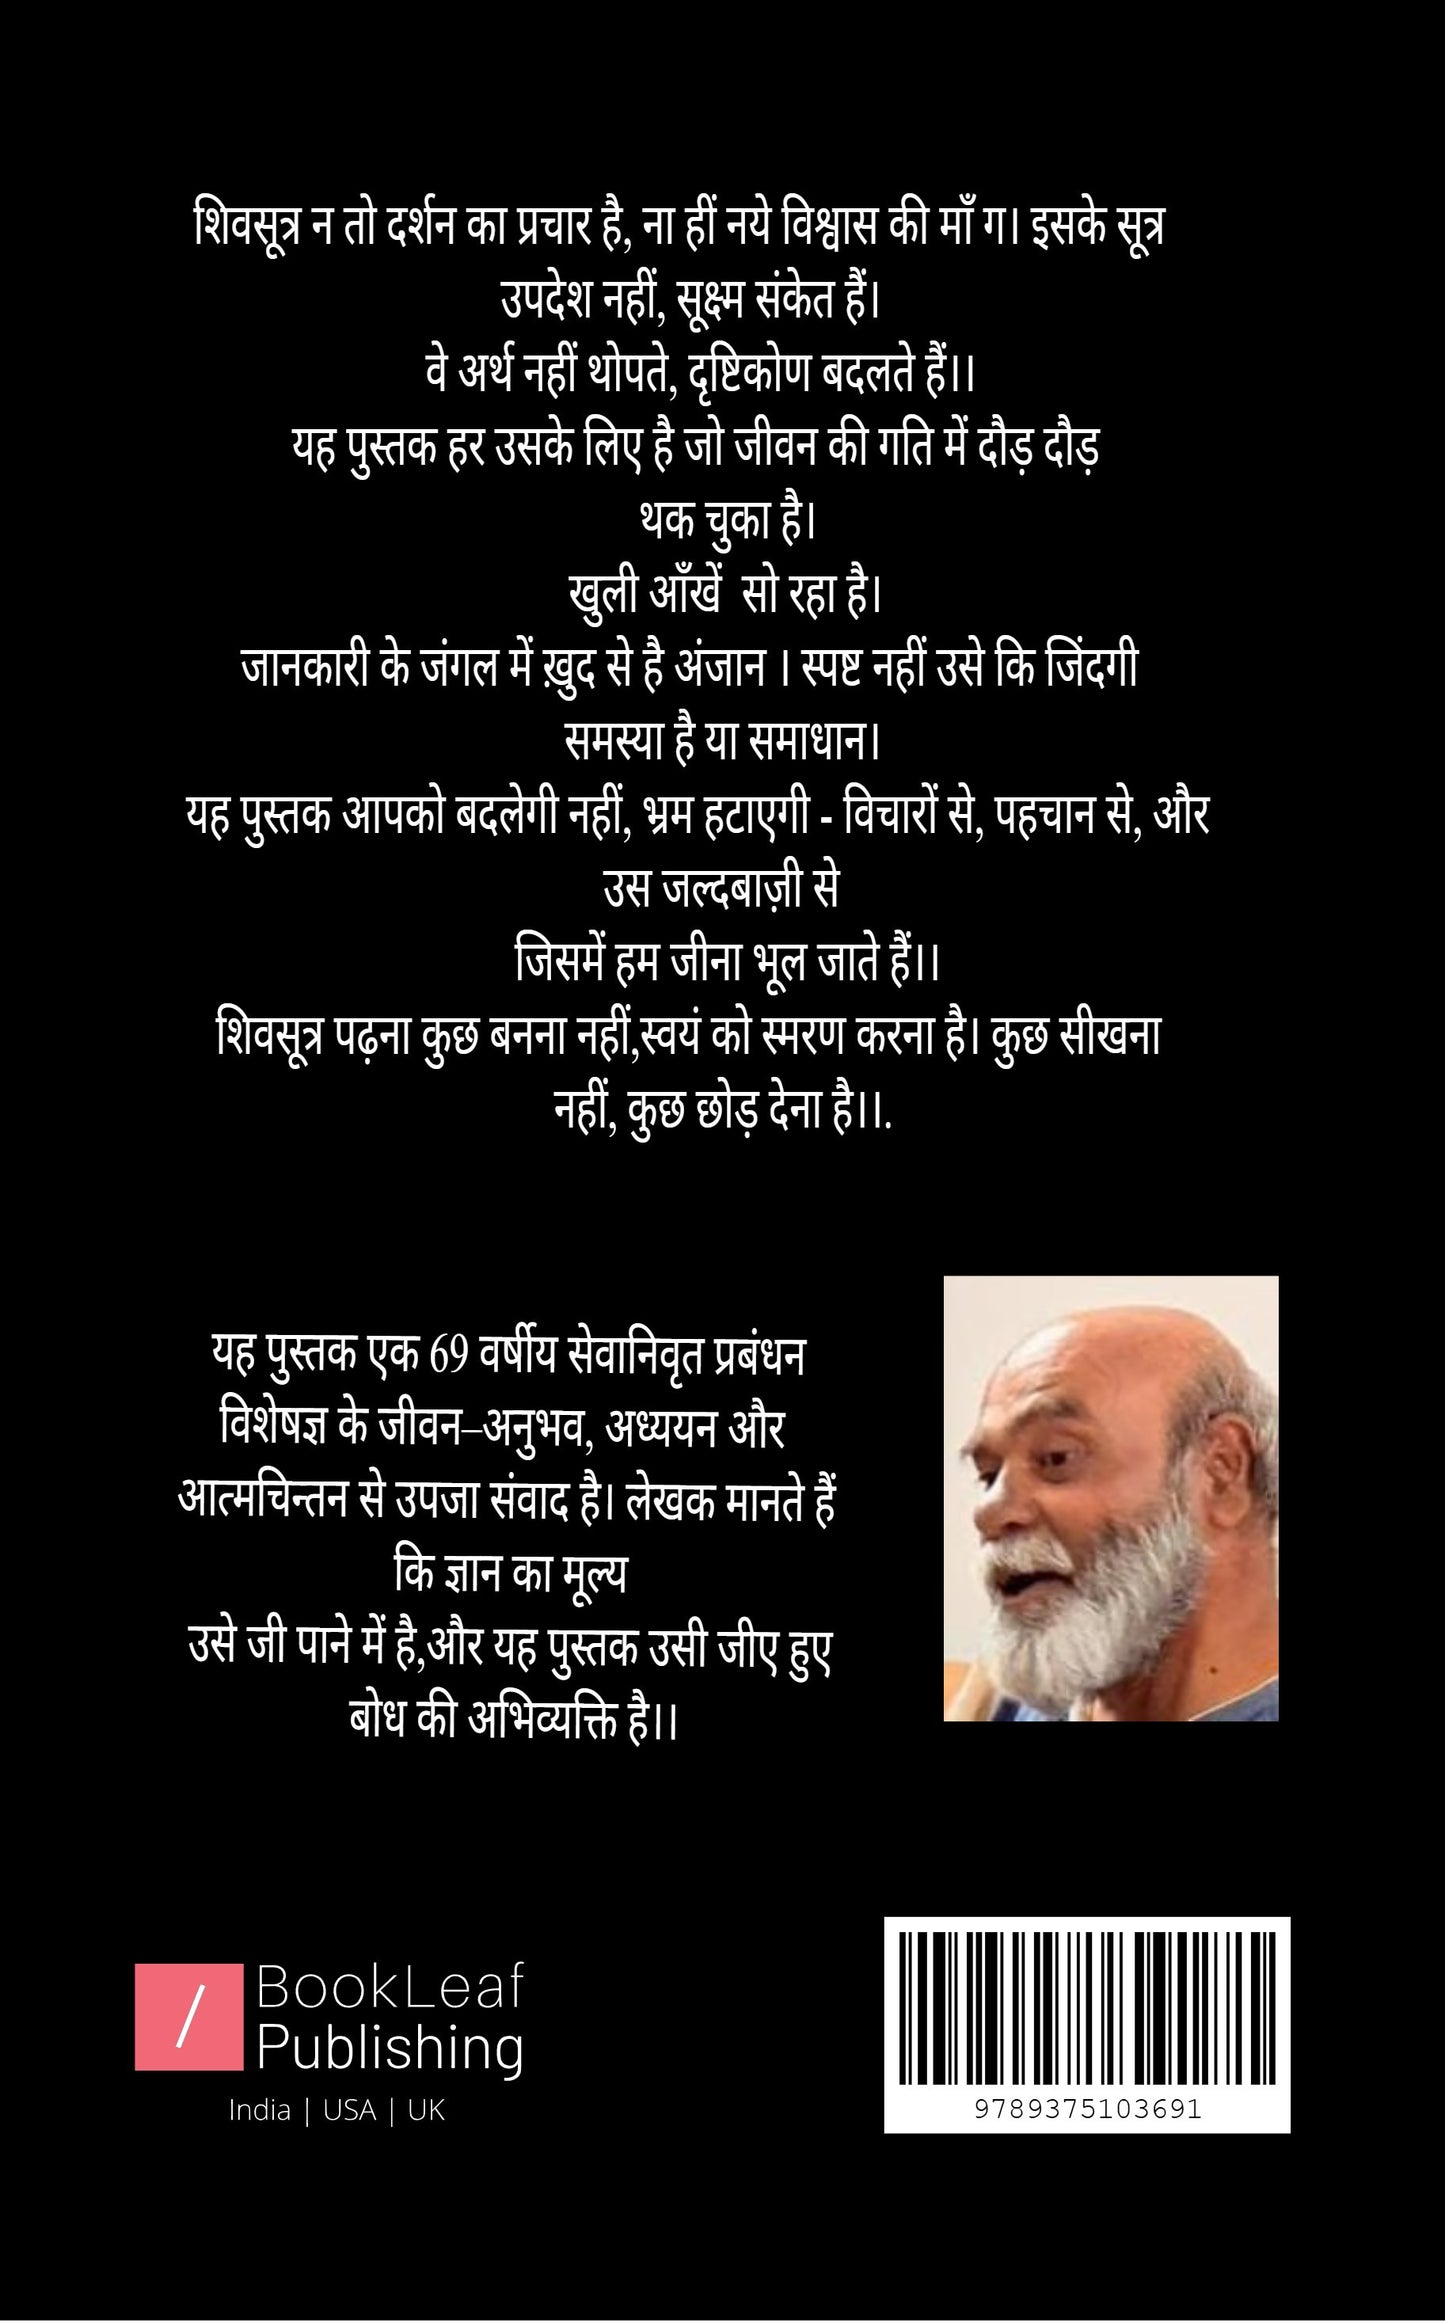 शिवसूत्र न तो दर्शन का प्रचार है, ना हीं नये विश्वास की माँ ग। इसके सूत्र
उपदेश नहीं, सूक्ष्म संकेत हैं।
वे अर्थ नहीं थोपते, दृष्टिकोण बदलते हैं।।
यह पुस्तक हर उसके लिए है जो जीवन की गति में दौड़ दौड़
थक चुका है।
खुली आँखें सो रहा है।
जानकारी के जंगल में ख़ुद से है अंजान । स्पष्ट नहीं उसे कि जिंदगी
समस्या है या समाधान।
यह पुस्तक आपको बदलेगी नहीं, भ्रम हटाएगी - विचारों से, पहचान से, और
उस जल्दबाज़ी से
जिसमें हम जीना भूल जाते हैं।।
शिवसूत्र पढ़ना कुछ बनना नहीं,स्वयं को स्मरण करना है। कुछ सीखना
नहीं, कुछ छोड़ देना है।।.
यह पुस्तक एक 69 वर्षीय सेवानिवृत प्रबंधन
विशेषज्ञ के जीवन–अनुभव, अध्ययन और
आत्मचिन्तन से उपजा संवाद है। लेखक मानते हैं
कि ज्ञान का मूल्य
उसे जी पाने में है,और यह पुस्तक उसी जीए हुए
बोध की अभिव्यक्ति है।।
BookLeaf
Publishing
India | USA | UK
9789375103691